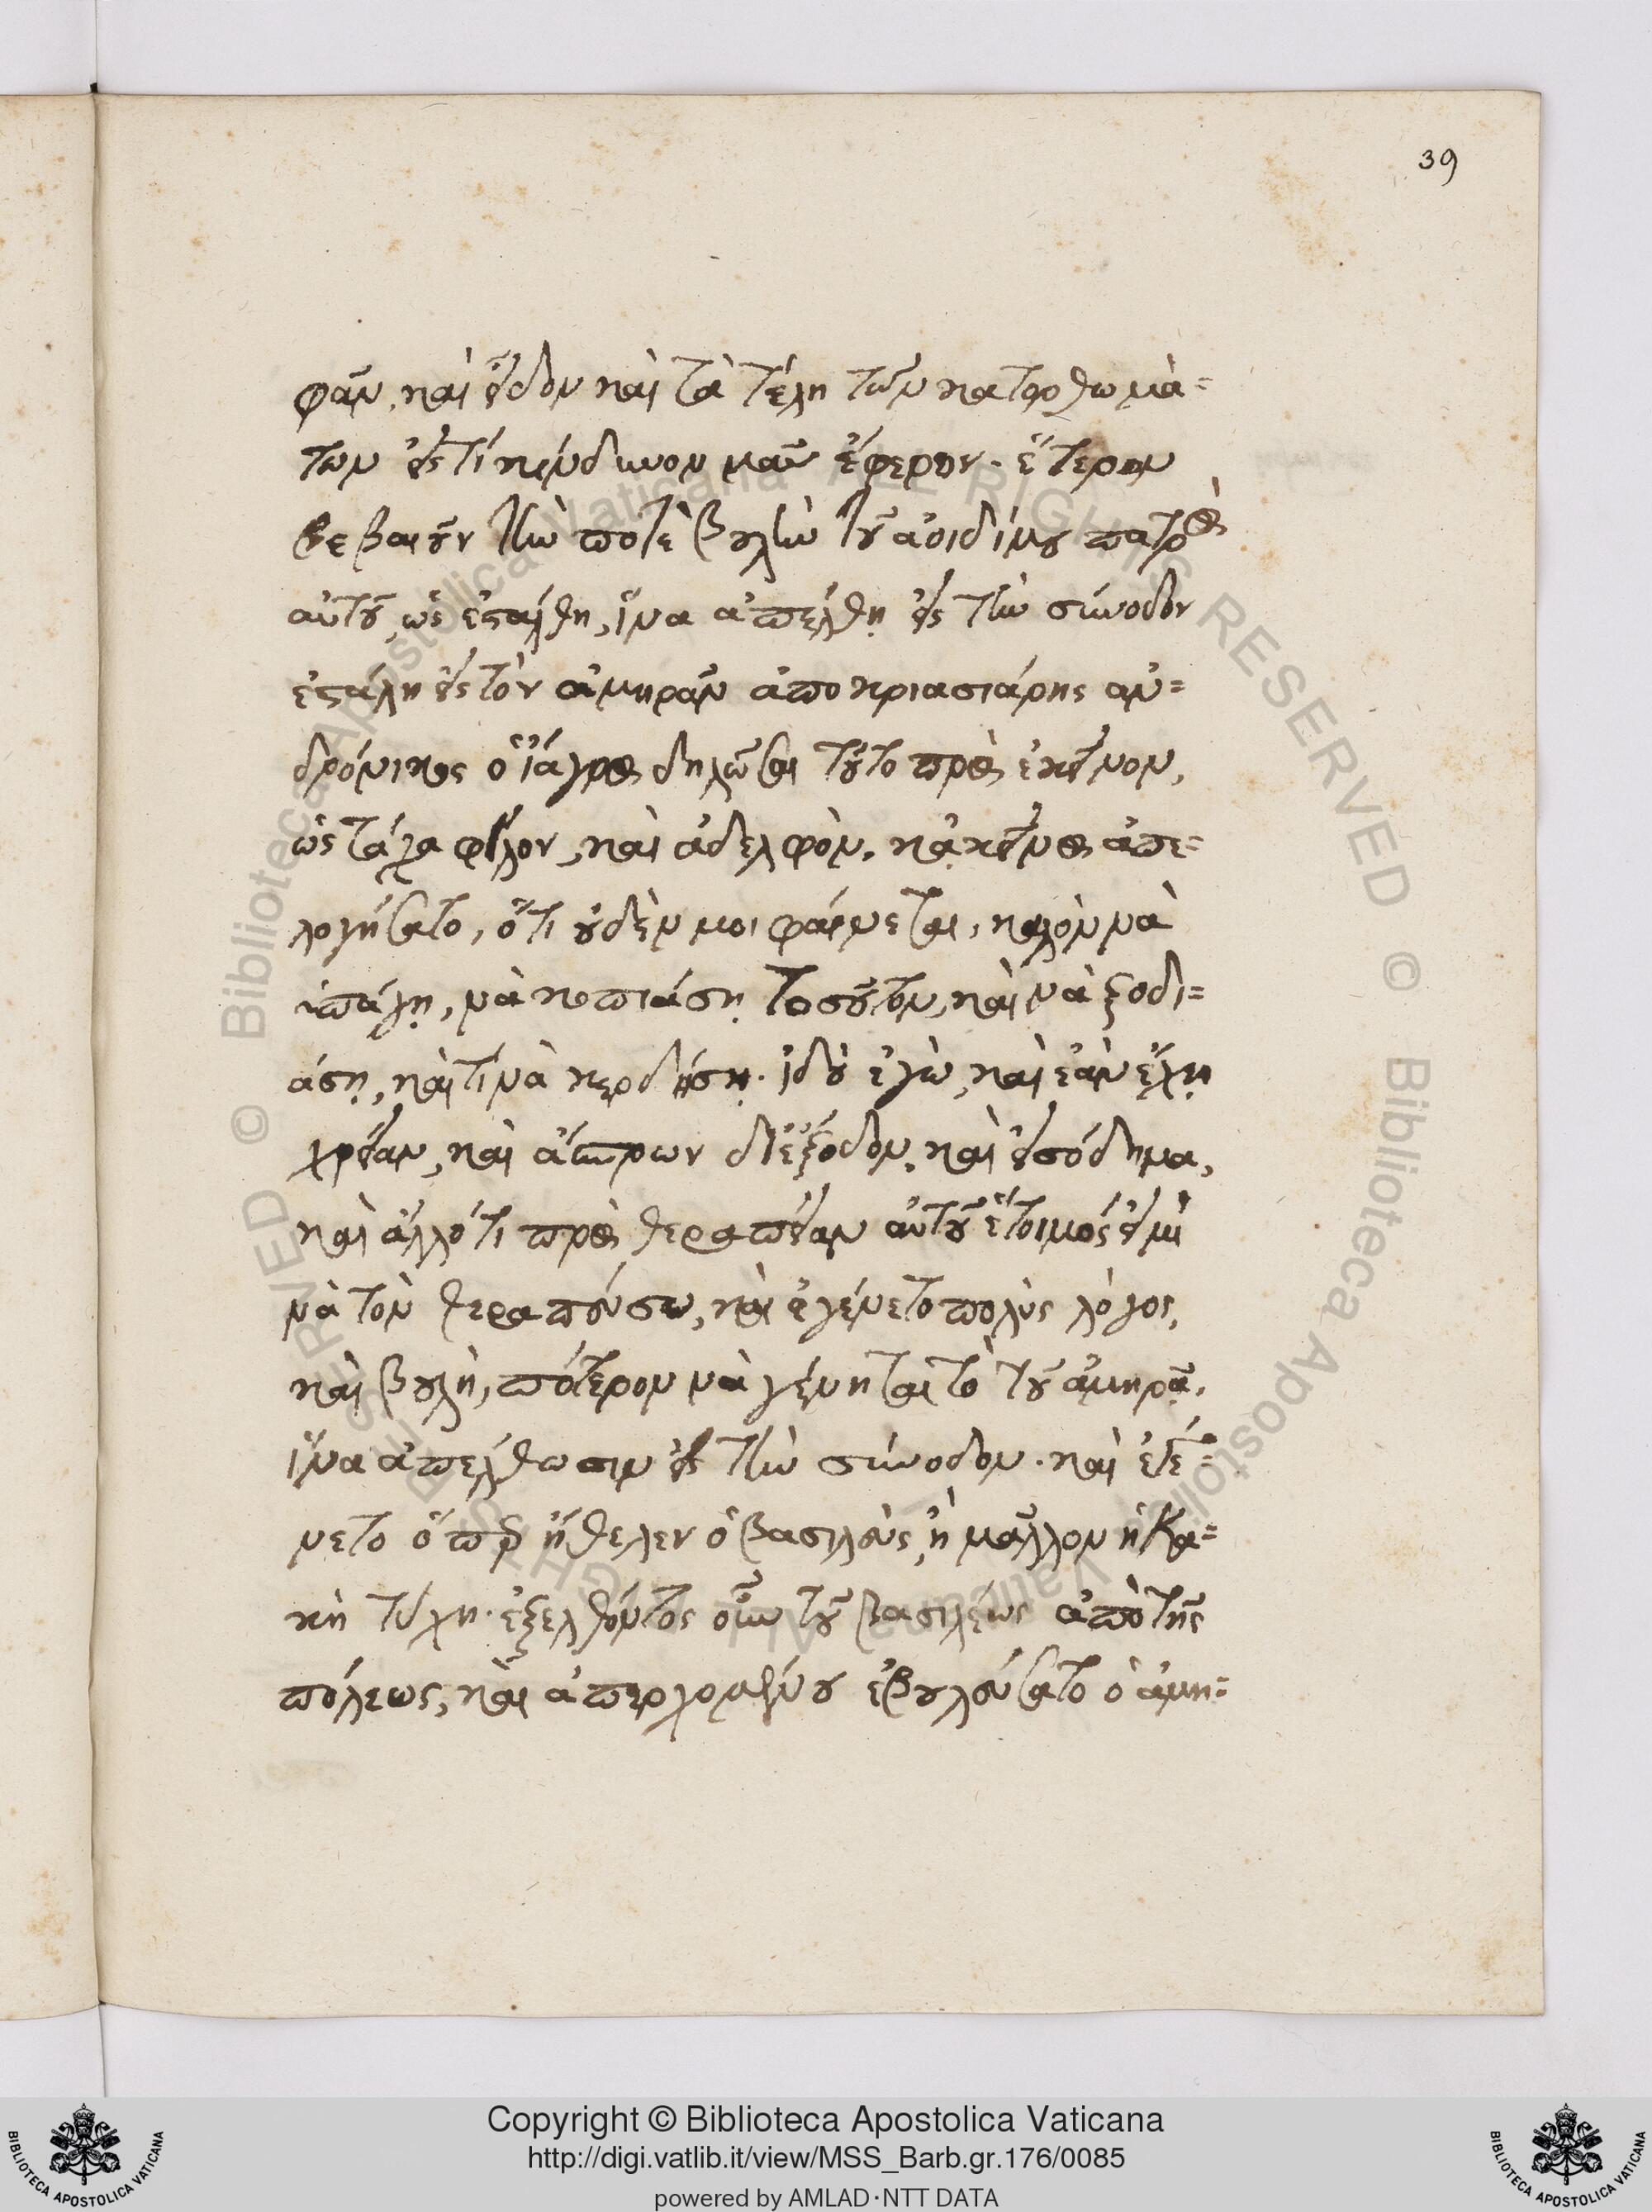 39
φᾶν, καὶ εἶδον καὶ τὰ τέλη τῶν κατορθωμά=
των εἰς τί κίνδυνον μᾶς ἔφερον. ἕτερον
βεβαιοῦν τὴν ποτὲ βουλὴν τοῦ ἀοιδίμου πατρὸς
αὐτοῦ, ὡς ἐστάλθη, ἵνα ἀπέλθῃ εἰς τὴν σύνοδον
ἐστάλη εἰς τὸν ἀμηρᾶν ἀποκριασιάρης ἀν=
δρόνικος ὁ ἴαγρος δηλῶσαι τοῦτο πρὸς ἐκεῖνον,
ὡς τάχα φίλον, καὶ ἀδελφόν. κἀκεῖνος ἀπε=
λογήσατο, ὅτι οὐδέν μοι φαίνεται, καλὸν νὰ
ὑπάγῃ, νὰ κοπιάσῃ τοσοῦτον, καὶ νὰ ξοδι=
άσῃ, καὶ τί νὰ κερδήσῃ. ἰδοὺ ἐγὼ, καὶ ἐὰν ἔχῃ
χρείαν, καὶ ἄσπρων δι' ἔξοδον, καὶ εἰσόδημα,
καὶ ἄλλό τι πρὸς θεραπείαν αὐτοῦ ἕτοιμός εἰμι
νὰ τὸν θεραπεύσω, καὶ ἐγένετο πολὺς λόγος,
καὶ βουλὴ, πότερον νὰ γένηται τὸ τοῦ ἀμηρᾶ,
ἵνα ἀπέλθωσιν εἰς τὴν σύνοδον. καὶ ἐγέ=
νετο ὅπερ ἤθελεν ὁ βασιλεὺς, ἢ μᾶλλον ἡ κα=
κὴ τύχη. ἐξελθόντος οὖν τοῦ βασιλέως ἀπὸ τῆς
πόλεως, καὶ ἀπερχομένου ἐβουλεύσατο ὁ ἀμη=
Copyright © Biblioteca Apostolica Vaticana
http://digi.vatlib.it/view/MSS_Barb.gr.176/0085
powered by AMLAD·NTT DATA